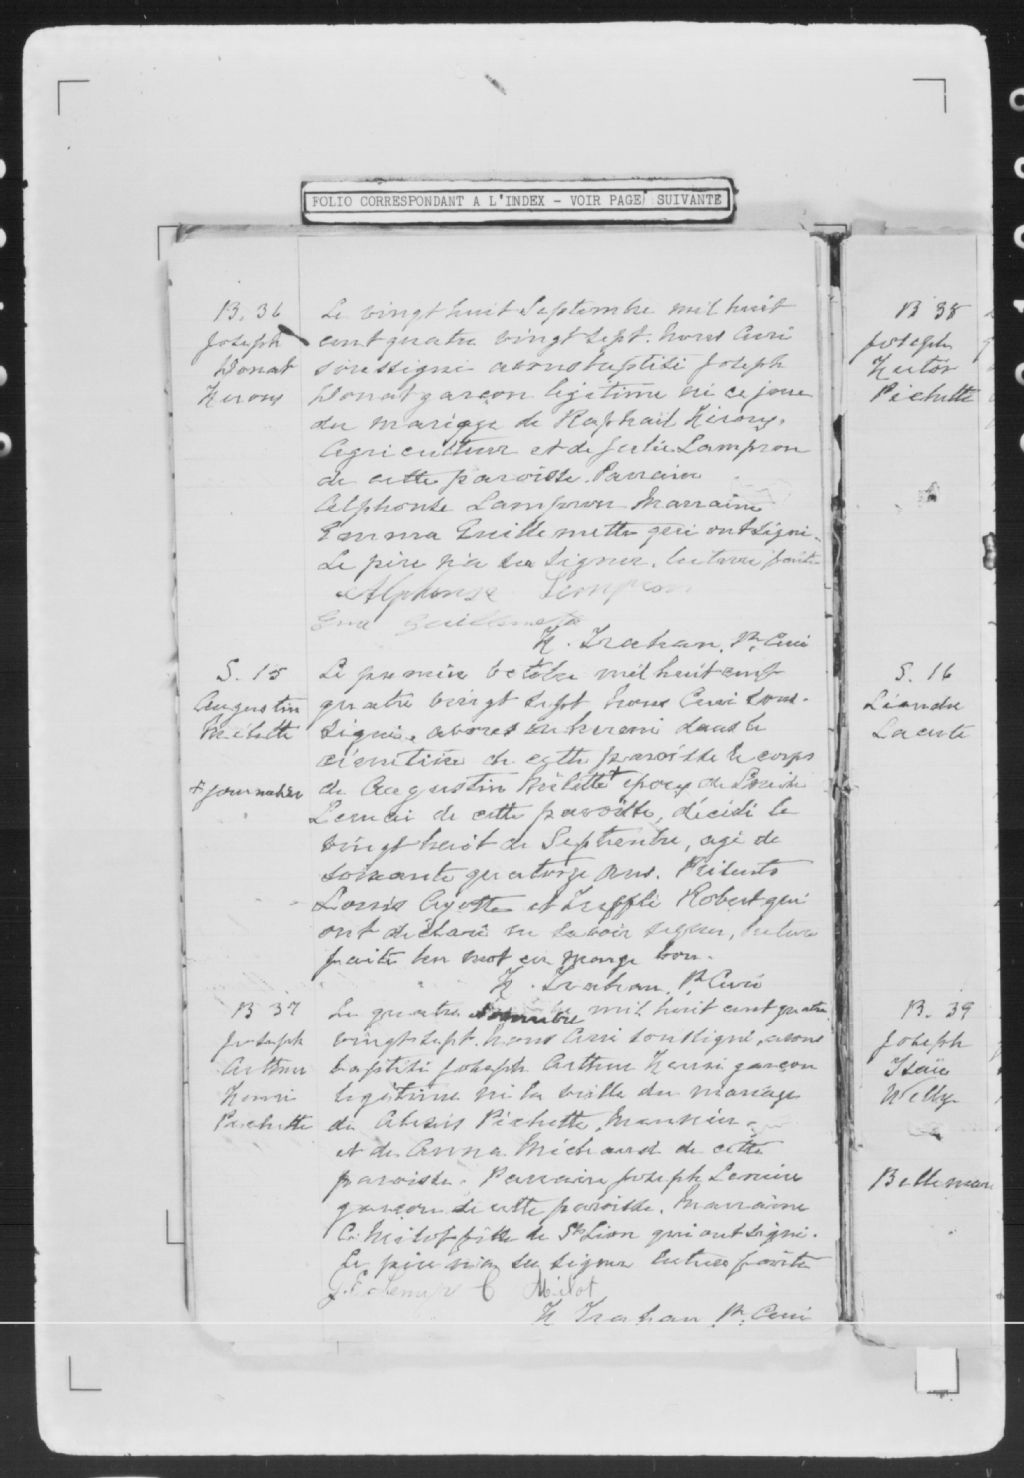 FOLIO CORRESPONDANT A L'INDEX - VOIR PAGE SUIVANTE
B. 36
Joseph
Donat
Le vingt huit Septembre mil huit
cent quatre vingt sept. Nous Curé
soussigné avons baptisé Joseph
Donat garçon légitime né ce jour
du mariage de Raphael
Agriculteur et de Julie Lampron
de cette paroisse. Parrain
Alphonse Lampron Marraine
Emma Guillemette qui ont signé.
Le père n'a su signer. lecture faite
Alphonse Lampron
Guillemette
H. Trahan, Ptr, Curé
S. 15
Augustin
Milette
+ journalier
Le premier octobre mil huit cent
quatre vingt sept nous Curé sous-
signé, avons inhumé dans le
cimetière de cette paroisse le corps
de Augustin Milette + époux de
de cette paroisse, décédé le
vingt huit de Septembre, agé de
soixante quatorze ans. Présents
Louis Ayotte et Trefflé Robert qui
ont déclaré ne savoir signer, lecture
faite un mot en marge bon.
H. Trahan, Ptr Curé
B 37
Joseph
Arthur
Henri
Pichette
Le quatre mil huit cent quatre
vingt-sept. Nous Curé soussigné, avons
baptisé Joseph Arthur Henri garçon
légitime né la veille du mariage
de Alexis Pichette, Meunier,
et de Anna Michaud de cette
paroisse. Parrain Joseph Lemire
garçon de cette paroisse. Marraine
C. Milot fille de St Léon qui ont signé.
Le père n'a su signer lecture faite
C Milot
H Trahan Ptr, Curé
B 38
Joseph
Hector
Pichette
S. 16
Léandre
Lacerte
B. 39
Joseph
Isaïe
Welly
Bellemare